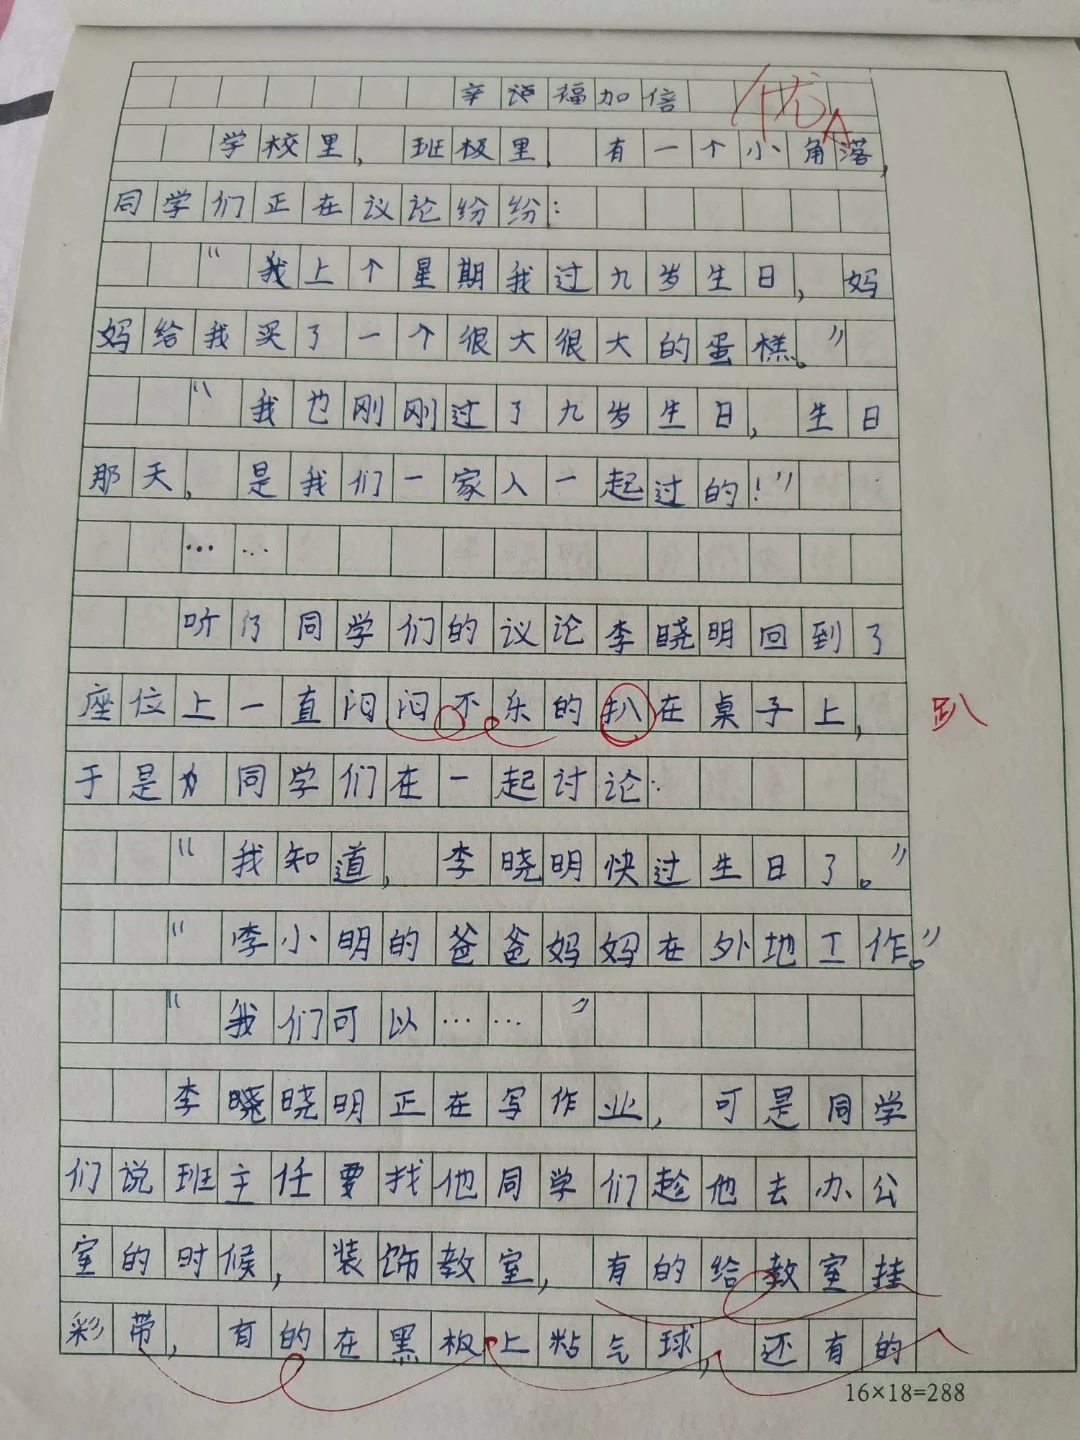 幸福加倍 优A
学校里，班极里，有一个小角落，
同学们正在议论纷纷：
“我上个星期我过九岁生日，妈
妈给我买了一个很大很大的蛋糕。”
“我也刚刚过了九岁生日，生日
那天，是我们一家人一起过的！”
……
听了同学们的议论李晓明回到了
座位上一直闷闷不乐的扒在桌子上， 趴
于是同学们在一起讨论：
“我知道，李晓明快过生日了。”
“李小明的爸爸妈妈在外地工作。”
“我们可以……”
李晓晓明正在写作业，可是同学
们说班主任要找他同学们趁他去办公
室的时候，装饰教室，有的给教室挂
彩带，有的在黑板上粘气球，还有的
16×18=288